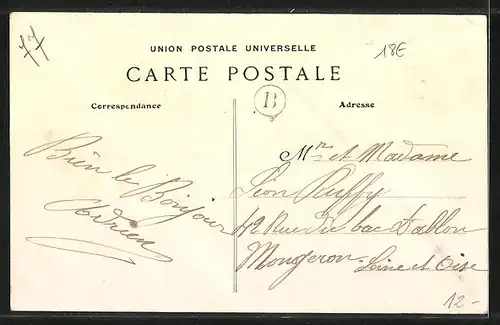 77
18€
UNION POSTALE UNIVERSELLE
CARTE POSTALE
B
Correspondance
Adresse
Bien le Bonjour
Adrien
Mr et Madame
Léon Ruffy
42 Rue du bac d'ablon
Mongeron. Seine et Oise
12.-